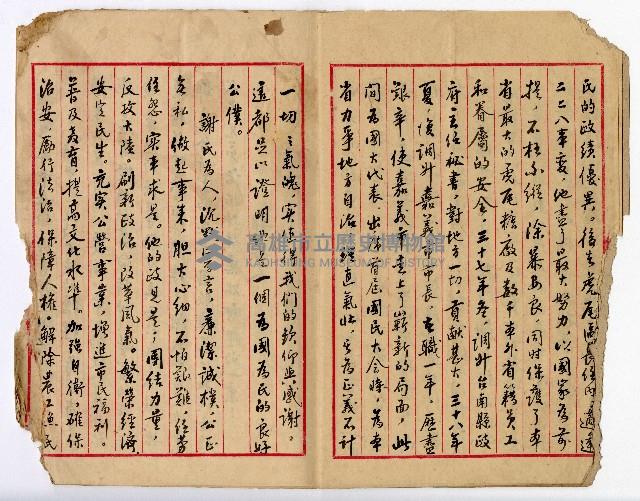 民的政績優異。後在虎尾區長任內,適逢
二二八事変,他盡了最大努力,以國家為前
提,不枉不縱,除暴安良,同時保護了本
省最大的虎尾糖廠及数千本外省籍員工
和眷屬的安全,三十七年冬,調升台南縣政
府主任秘書,對地方一切貢献甚大,三十八年
夏,復調升嘉義市市長,在職一年,歷盡
艱辛,使嘉義市走上了嶄新的局面,此
間為國大代表,出席首屆國民大会時,為本
省力爭地方自治,理直氣壯,為正義不計
一切之氣魄,實值得我們的欽仰与感謝。
這都足以證明他為一個為國為民的良好
公僕。
謝氏為人,沉默寡言,廉潔誠樸,公正
無私,做起事來,胆大心細,不怕艱難,任劳
任怨,實事求是。他的政見是,團结力量,
反攻大陸。刷新政治,改革風氣。繁荣經濟,
安定民生。充实公營事業,增進市民福利。
普及教育,提高文化水準。加強自衛,確保
治安,勵行法治,保障人權。解除農工漁民
高雄市立歷史博物館
KAOHSIUNG MUSEUM OF HISTORY